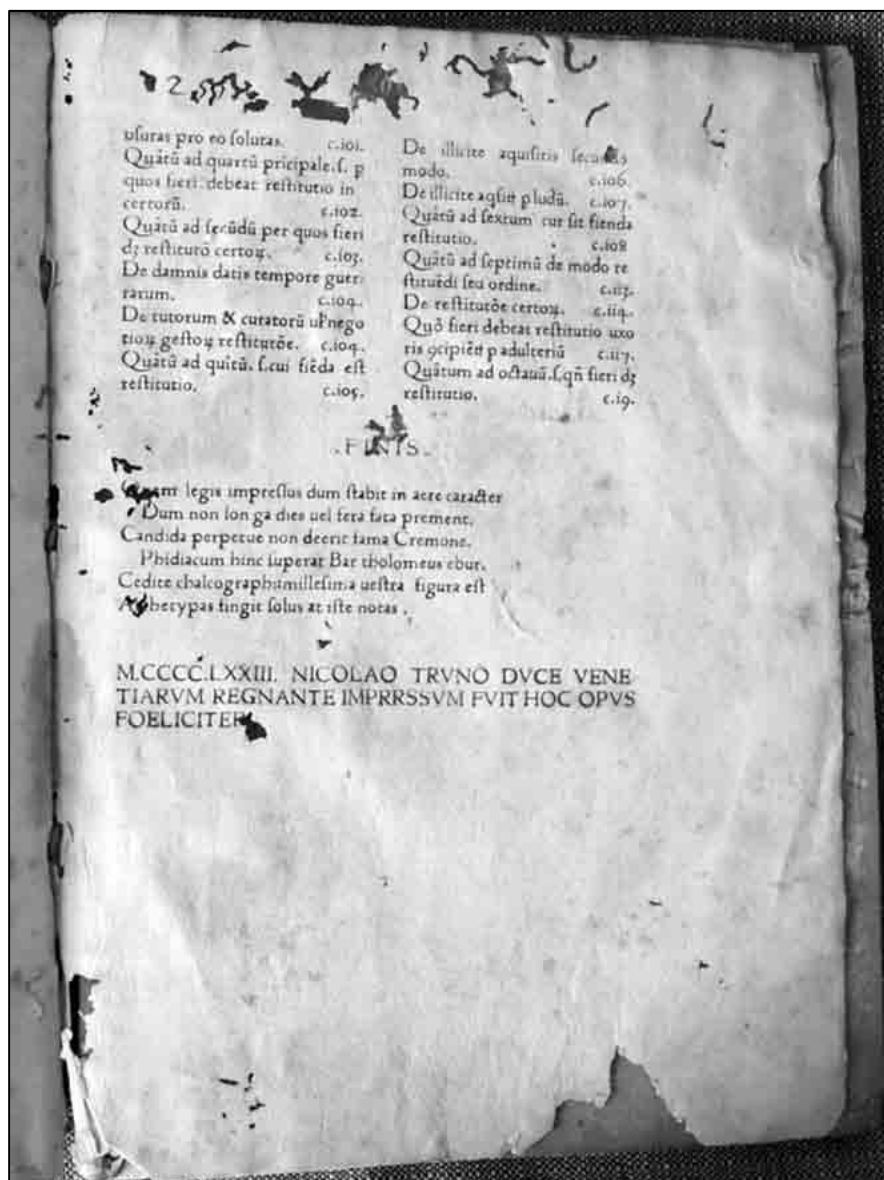 usuras pro eo solutas. c.101.
Quãtũ ad quartũ pricipale.s. p
quos fieri debeat restitutio in
certorũ. c.102.
Quãtũ ad secũdũ per quos fieri
dꝫ restitutõ certoꝝ. c.103.
De damnis datis tempore guer
rarum. c.104.
De tutorum & curatorũ ul nego
tioꝝ gestoꝝ restitutõe. c.104.
Quãtũ ad quĩtũ. s.cui fiẽda est
restitutio. c.105.
De illicite aquisitis
modo. c.106.
De illicite aqsitꝭ p ludũ. c.107.
Quãtũ ad sextum cur sit fienda
restitutio. c.108
Quãtũ ad septimũ de modo re
stituẽdi seu ordine. c.113.
De restitutõe certoꝝ. c.114.
Quõ fieri debeat restitutio uxo
ris ꝯcipiẽtꝭ p adulteriũ c.117.
Quãtum ad octauũ.s.qñ fieri dꝫ
restitutio. c.19.
.FINIS.
legis impressus dum stabit in aere caracter
Dum non lon ga dies uel fera fata prement.
Candida perpetue non deerit fama Cremone.
Phidiacum hinc superat Bar tholomeus ebur.
Cedite chalcographi:millesima uestra figura est
fingit solus at iste notas .
M.CCCC.LXXIII. NICOLAO TRVNO DVCE VENE
TIARVM REGNANTE IMPRRSSVM FVIT HOC OPVS
FOELICITER